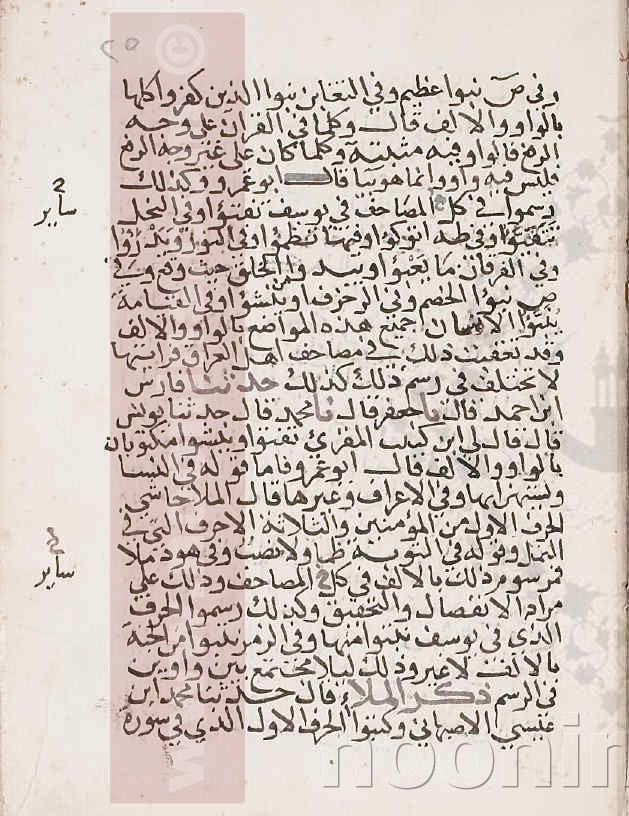 ٢٥
وفي ص نبوا عظيم وفي التغابن نبوا الذين كفروا كلها
بالواو والالف قال وكلما في القران على وجه
الرفع فالواو فيه مثبتة وكلما كان على غير وجه الرفع
فليس فيه واو وانما هو نبا قال ابو عمرو وكذلك
رسموا في كل المصاحف في يوسف تفتؤا وفي النحل
يتفيؤا وفي طه اتوكؤا وفيها تظمؤا وفي النور ويدرؤا
وفي الفرقان ما يعبؤا ويبدؤا الخلق حيث وقع وفي
ص نبؤا الخصم وفي الزخرف او ينشؤا وفي القيامة
ينبؤا الانسان جميع هذه المواضع بالواو والالف
وقد تعقبت ذلك في مصاحف اهل العراق فرايتها
لا تختلف في رسم ذلك كذلك حدثنا فارس
ابن احمد قال نا جعفر قال نا محمد قال حدثنا يونس
قال قال لي ابن كيسة المقرئ تفتوا وينشوا مكتوبان
بالواو والالف قال ابو عمرو فاما قوله في النسا
ويستهزا بها وفي الاعراف وغيرها قال الملا حاشى
الحرف الاول من المؤمنين والثلاثة الاحرف التي في
النمل وقوله في التوبة ظما ولا نصب وفي هود ملا
فمرسوم ذلك بالالف في كل المصاحف وذلك على
مراد الانفصال والتحقيق وكذلك رسموا الحرف
الذي في يوسف نتبوا منها وفي الزمر نتبوا من الجنة
بالالف لا غير وذلك ليلا يجتمع بين واوين
في الرسم ذكر الملاء قال حدثنا محمد ابن
عيسى الاصبهاني وكتبوا الحرف الاول الذي في سورة
ساير
ساير
noonin